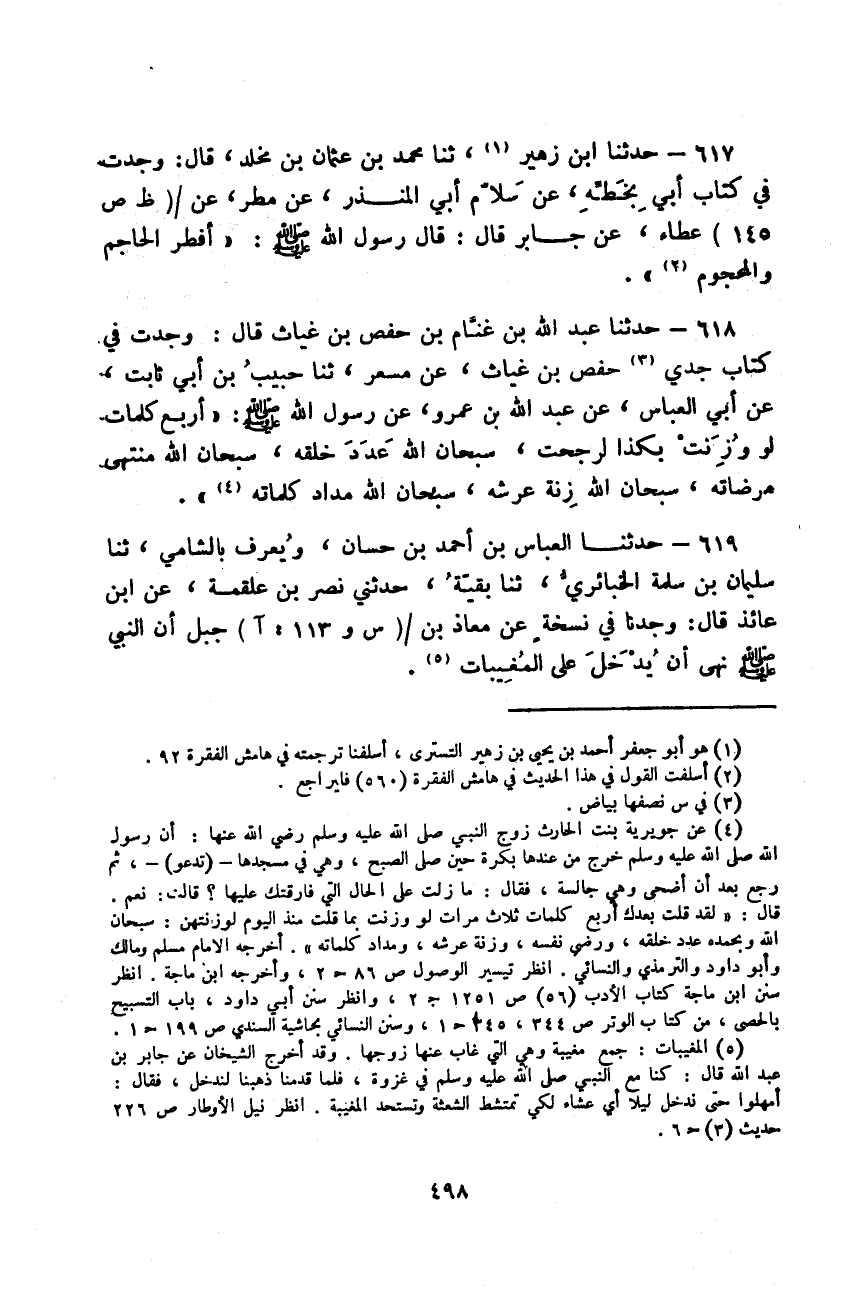 ٦١٧ – حدثنا ابن زهير (١) ، ثنا محمد بن عثمان بن مخلد ، قال: وجدت
في كتاب أبي بِخَطِّهِ ، عن سَلاّم أبي المنـذر ، عن مطر، عن /( ظ ص
١٤٥ ) عطاء ، عن جـابر قال : قال رسول الله ﷺ : « أفطر الحاجم
والمحجوم (٢) » .
٦١٨ – حدثنا عبد الله بن غنَّام بن حفص بن غياث قال : وجدت في
كتاب جدي (٣) حفص بن غياث ، عن مسعر ، ثنا حبيبُ بن أبي ثابت ،
عن أبي العباس ، عن عبد الله بن عمرو، عن رسول الله ﷺ: « أربع كلمات
لو وُزِنَتْ بكذا لرجحت ، سبحان الله عَدَدَ خلقه ، سبحان الله منتهى
مرضاته ، سبحان الله زِنة عرشه ، سبحان الله مداد كلماته (٤) » .
٦١٩ – حدثنـا العباس بن أحمد بن حسان ، ويُعرف بالشامي ، ثنا
سليمان بن سلمة الخبائريُّ ، ثنا بقيّةُ ، حدثني نصر بن علقمة ، عن ابن
عائذ قال: وجدنا في نسخةٍ عن معاذ بن /( س و ١١٣ : آ ) جبل أن النبي
ﷺ نهى أن يُدْخَلَ على المُغِيبات (٥) .
(١) هو أبو جعفر أحمد بن يحيى بن زهير التسترى ، أسلفنا ترجمته في هامش الفقرة ٩٢ .
(٢) أسلفت القول في هذا الحديث في هامش الفقرة (٥٦٠) فليراجع .
(٣) في س نصفها بياض .
(٤) عن جويرية بنت الحارث زوج النبي صلى الله عليه وسلم رضي الله عنها : أن رسول
الله صلى الله عليه وسلم خرج من عندها بكرة حين صلى الصبح ، وهي في مسجدها – (تدعو) – ، ثم
رجع بعد أن أضحى وهي جالسة ، فقال : ما زلت على الحال التي فارقتك عليها ؟ قالت: نعم .
قال : « لقد قلت بعدك أربع كلمات ثلاث مرات لو وزنت بما قلت منذ اليوم لوزنتهن : سبحان
الله وبحمده عدد خلقه ، ورضي نفسه ، وزنة عرشه ، ومداد كلماته » . أخرجه الامام مسلم ومالك
وأبو داود والترمذي والنسائي . انظر تيسير الوصول ص ٨٦ ج ٢ ، وأخرجه ابن ماجة . انظر
سنن ابن ماجة كتاب الأدب (٥٦) ص ١٢٥١ ج ٢ ، وانظر سنن أبي داود ، باب التسبيح
بالحصى ، من كتاب الوتر ص ٣٤٤ ، ٣٤٥ ج ١ ، وسنن النسائي بحاشية السندي ص ١٩٩ ج ١ .
(٥) المغيبات : جمع مغيبة وهي التي غاب عنها زوجها . وقد أخرج الشيخان عن جابر بن
عبد الله قال : كنا مع النبي صلى الله عليه وسلم في غزوة ، فلما قدمنا ذهبنا لندخل ، فقال :
أمهلوا حتى ندخل ليلاً أي عشاء لكي تمتشط الشعثة وتستحد المغيبة . انظر نيل الأوطار ص ٢٢٦
حديث (٣) ج ٦ .
٤٩٨